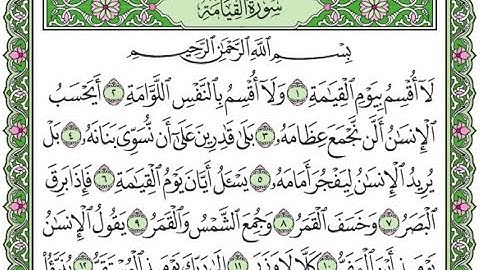 سُورَةُ القِيَامَةِ
بِسۡمِ ٱللَّهِ ٱلرَّحۡمَٰنِ ٱلرَّحِيمِ
لَآ أُقۡسِمُ بِيَوۡمِ ٱلۡقِيَٰمَةِ ١ وَلَآ أُقۡسِمُ بِٱلنَّفۡسِ ٱللَّوَّامَةِ ٢ أَيَحۡسَبُ
ٱلۡإِنسَٰنُ أَلَّن نَّجۡمَعَ عِظَامَهُۥ ٣ بَلَىٰ قَٰدِرِينَ عَلَىٰٓ أَن نُّسَوِّيَ بَنَانَهُۥ ٤ بَلۡ
يُرِيدُ ٱلۡإِنسَٰنُ لِيَفۡجُرَ أَمَامَهُۥ ٥ يَسۡـَٔلُ أَيَّانَ يَوۡمُ ٱلۡقِيَٰمَةِ ٦ فَإِذَا بَرِقَ
ٱلۡبَصَرُ ٧ وَخَسَفَ ٱلۡقَمَرُ ٨ وَجُمِعَ ٱلشَّمۡسُ وَٱلۡقَمَرُ ٩ يَقُولُ ٱلۡإِنسَٰنُ
يَوۡمَئِذٍ أَيۡنَ ٱلۡمَفَرُّ ١٠ كَلَّا لَا وَزَرَ ١١ إِلَىٰ رَبِّكَ يَوۡمَئِذٍ ٱلۡمُسۡتَقَرُّ ١٢ يُنَبَّؤُاْ